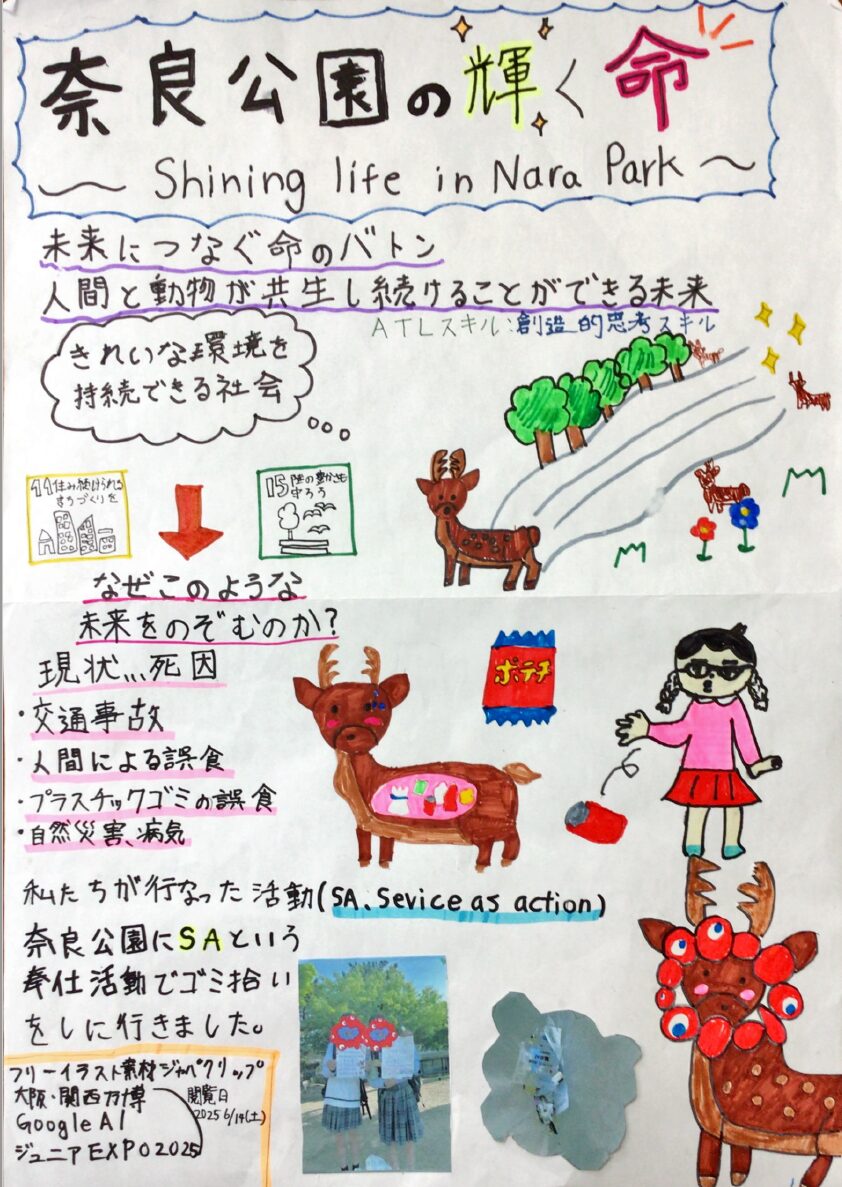 奈良公園の輝く命
～ Shining life in Nara Park ～
未来につなぐ命のバトン
人間と動物が共生し続けることができる未来
ATLスキル:創造的思考スキル
きれいな環境を
持続できる社会
11住み続けられる
まちづくりを
15陸の豊かさも
守ろう
なぜこのような
未来をのぞむのか?
現状…死因
・交通事故
・人間による誤食
・プラスチックゴミの誤食
・自然災害、病気
ポテチ
私たちが行なった活動(SA、Sevice as action)
奈良公園にSAという
奉仕活動でゴミ拾い
をしに行きました。
フリーイラスト素材ジャパクリップ
大阪・関西万博
Google AI
ジュニアEXPO2025
閲覧日
2025 6/14(土)